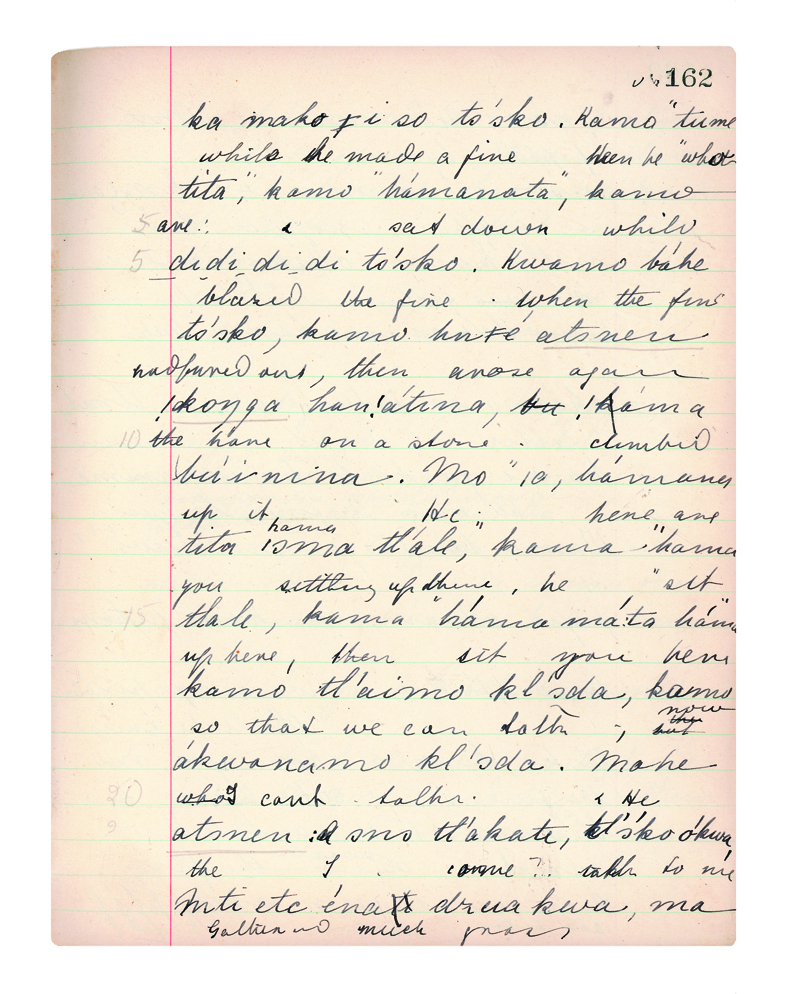 162
ka mako ŧi so tósko. Kamo "tume
while he made a fire then he "what
tita", kamo "hámanata", kamo
are: sat down while
5 didi di di tósko. Kwamo báhe
blazed the fire. when the fire
tósko, kamo hu atsnen
had burned out, then arose again
!koŋga han!átina, !káma
10 the hare on a stone. climbed
bu'inina. Mo "ia, hámana
up it He: here are
hama
tita sma tl'ale," kama "hama
you sitting up there, he "sit
15 tlale, kama "háma máta háma
up here, then sit you here
kamó tl'aimo kl'sda, kamo
now
so that we can talk
ákwanamo kl'sda. Mahe
20 cant talk. He
atsnen: a sno tl'akate, tl'ísko ókwa
the I come? talk to me
Mti etc énati dzua kwa, ma
Gathered much grass